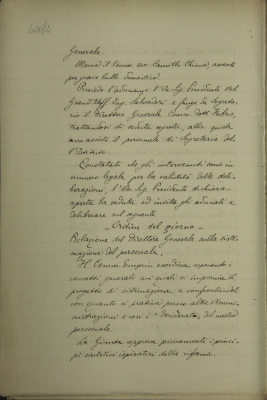 Generale.
Manca il Comm. avv. Camillo Chimè, assente
per grave lutto domestico.
Presiede l'adunanza l'On. Sig. Presidente del
Grand'Uff. Ing. Salvadori e funge da Segreta-
rio il Direttore Generale Comm. Dott.
trattandosi di seduta segreta, alla quale
non assiste il personale di Segreteria del-
l'Istituto.
Constatato che gli intervenuti sono in
numero legale per la validità delle deli-
berazioni, l'On. Sig. Presidente dichiara
aperta la seduta ed invita gli adunati a
deliberare sul seguente
Ordine del giorno
Relazione del Direttore Generale sulla siste-
mazione del personale.
Il Comm. esordisce esponendo i
concetti generali sui quali si impernia il
progetto di sistemazione e confrontandoli
con quanto si pratica presso altre Ammi-
nistrazioni e con i "desiderata" del nostro
personale.
La Giunta approva pienamente i princi-
pi direttivi ispiratori della riforma.